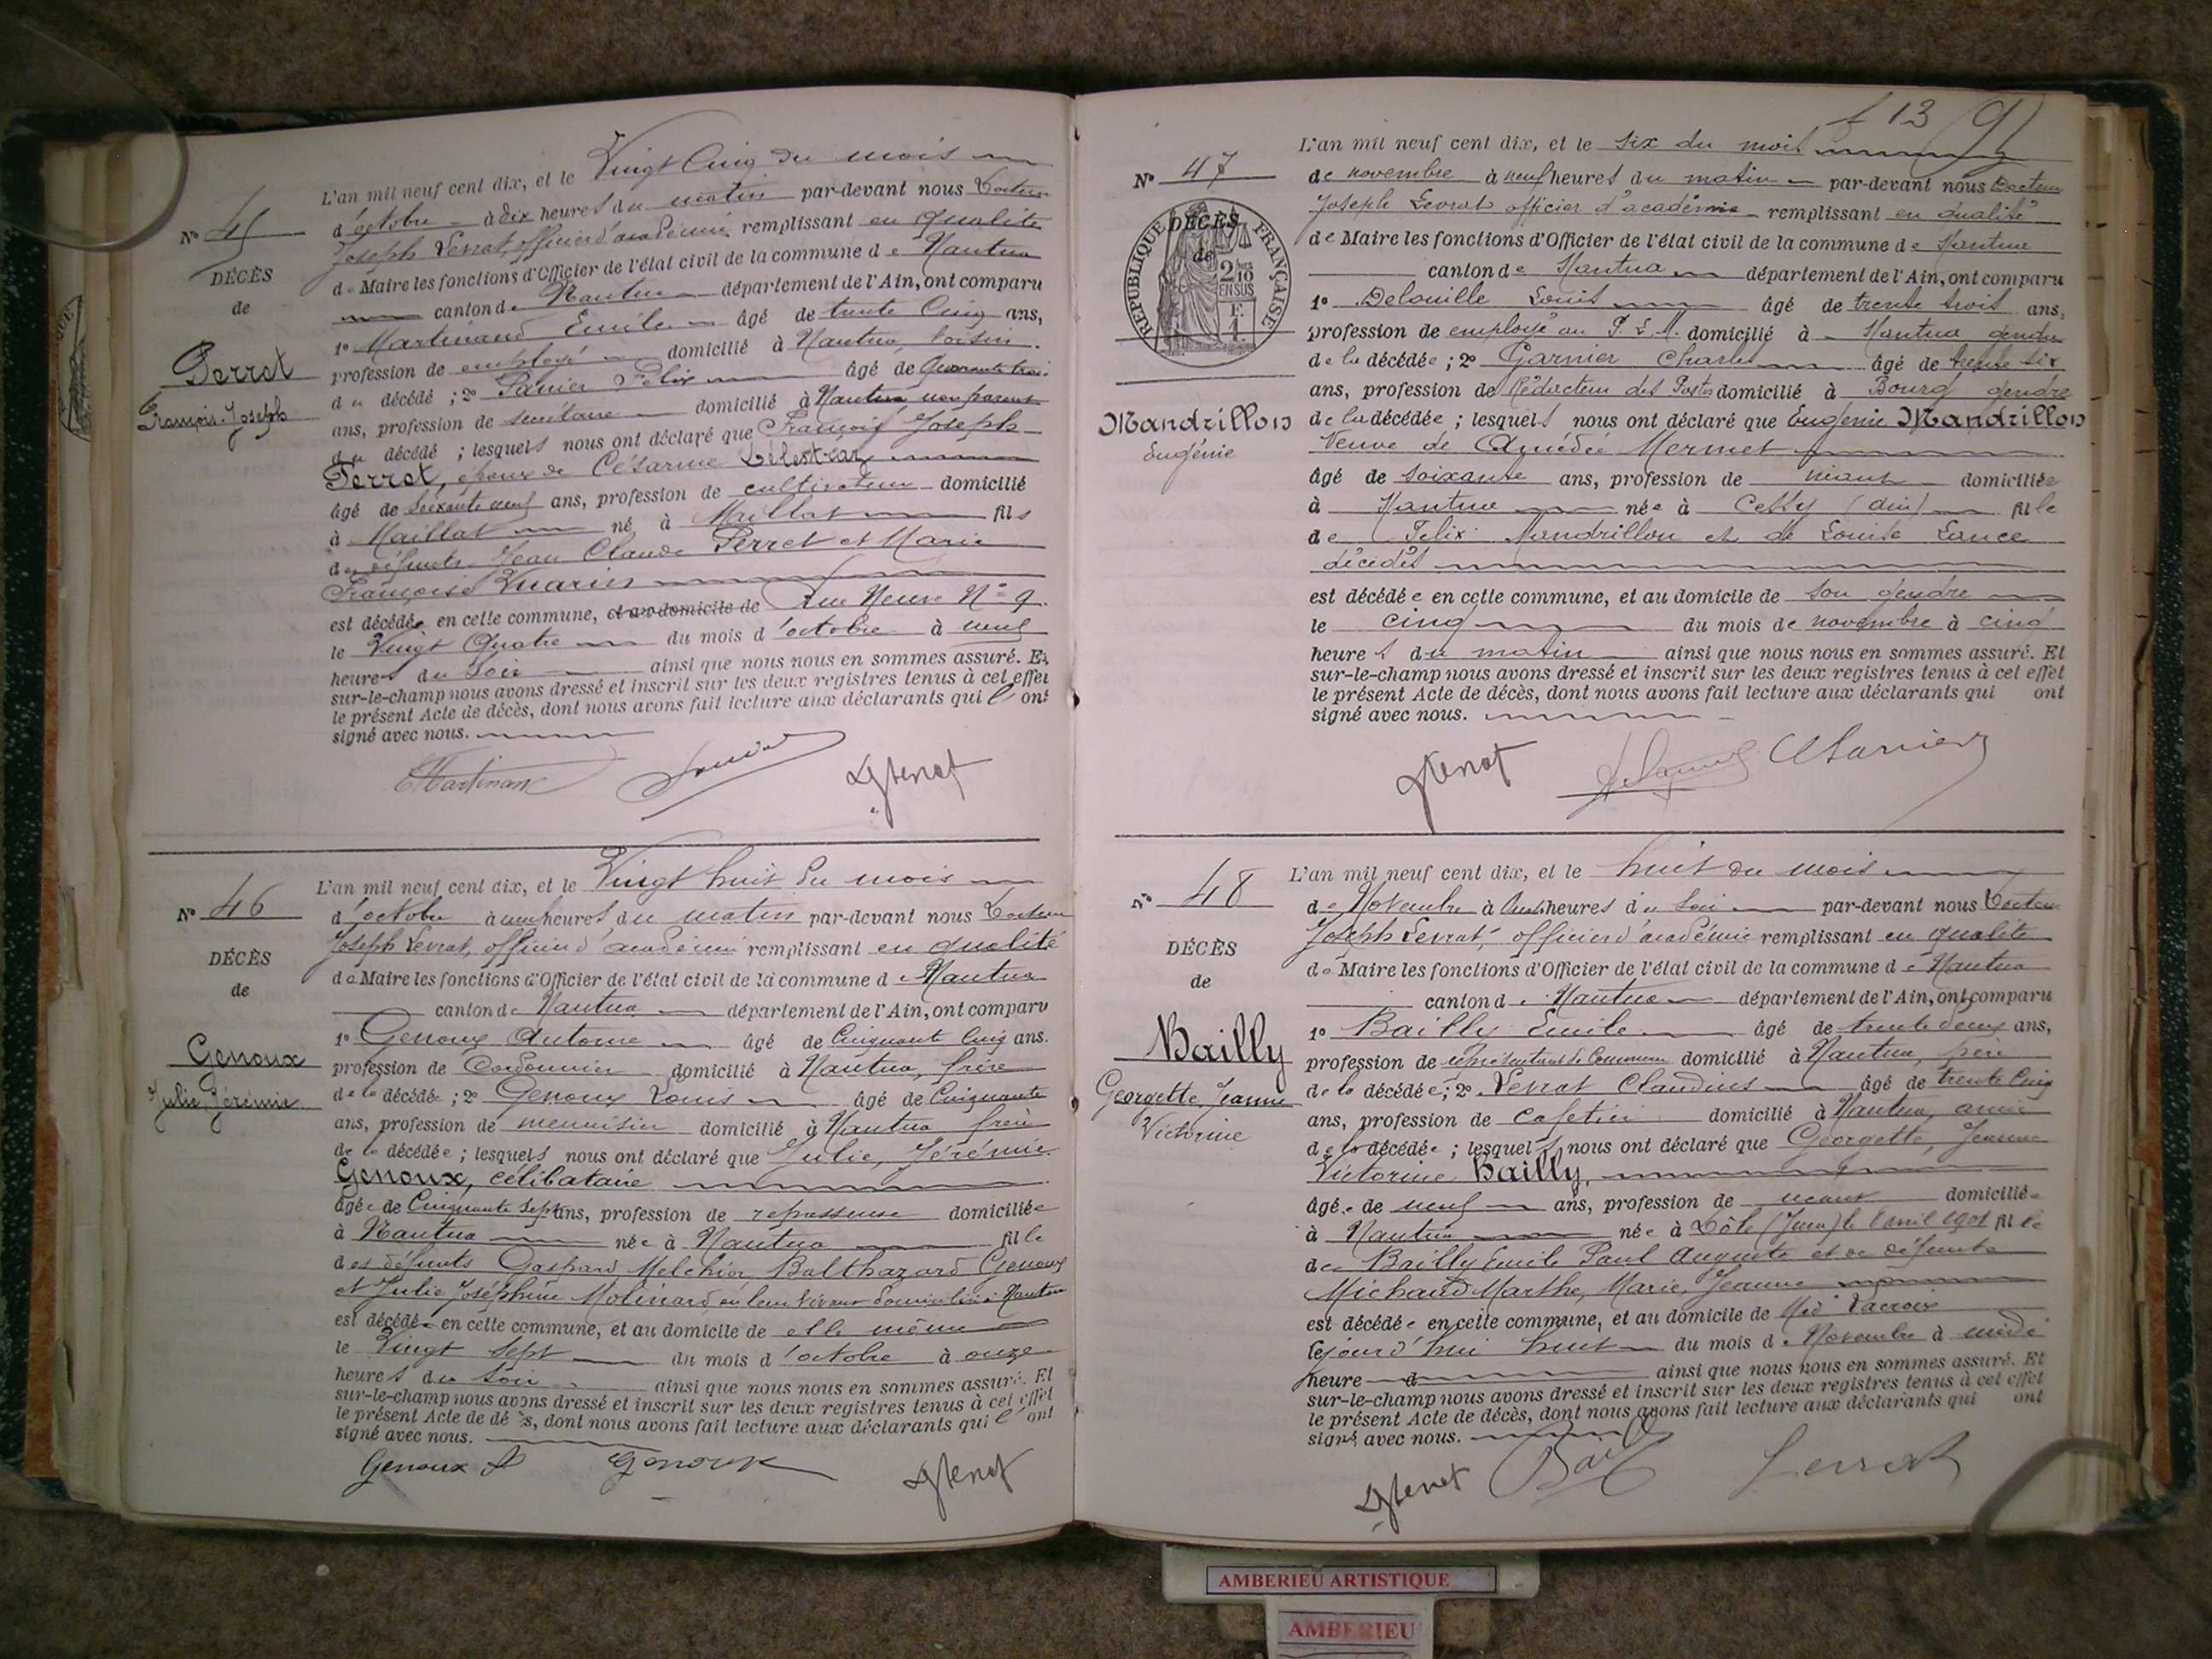 L'an mil neuf cent dix, et le Vingt Cinq du mois
N° 45
d'octobre à dix heures du matin par-devant nous Docteur
Joseph Levrat, officier d'académie remplissant en qualité
de Maire les fonctions d'Officier de l'état civil de la commune de Nantua
canton de Nantua département de l'Ain, ont comparu
DÉCÈS
de
Perret
François-Joseph
1° Martinand Emile âgé de trente Cinq ans,
profession de employé domicilié à Nantua, voisin
du décédé ; 2° Panier Félix âgé de Quarante trois
ans, profession de secrétaire domicilié à Nantua non parent
du décédé ; lesquels nous ont déclaré que François Joseph
Perret, époux de Césarine
âgé de soixante neuf ans, profession de cultivateur domicilié
à Maillat né à Maillat fils
de défunts Jean Claude Perret et Marie
Françoise Vuarin
est décédé en cette commune, et au domicile de Rue Neuve N° 9.
le Vingt Quatre du mois d'octobre à neuf
heures du soir ainsi que nous nous en sommes assuré. Et
sur-le-champ nous avons dressé et inscrit sur les deux registres tenus à cet effet
le présent Acte de décès, dont nous avons fait lecture aux déclarants qui l'ont
signé avec nous.
EMartinand
L'an mil neuf cent dix, et le Vingt huit du mois
N° 46
d'octobre à neuf heures du matin par-devant nous Docteur
Joseph Levrat, officier d'académie remplissant en qualité
de Maire les fonctions d'Officier de l'état civil de la commune de Nantua
canton de Nantua département de l'Ain, ont comparu
DÉCÈS
de
Genoux
Julie, Jérémie
1° Genoux Antoine âgé de Cinquante Cinq ans.
profession de Cordonnier domicilié à Nantua, frère
de la décédée ; 2° Genoux Louis âgé de Cinquante
ans, profession de menuisier domicilié à Nantua frère
de la décédée ; lesquels nous ont déclaré que Julie, Jérémie
Genoux, célibataire
âgée de Cinquante Sept ans, profession de repasseuse domiciliée
à Nantua née à Nantua fille
des défunts Gaspard Melchior Balthazard Genoux
et Julie Joséphine Molinard en leur vivant domiciliés à Nantua
est décédée en cette commune, et au domicile de elle même
le Vingt Sept du mois d'octobre à onze
heures du soir ainsi que nous nous en sommes assuré. Et
sur-le-champ nous avons dressé et inscrit sur les deux registres tenus à cet effet
le présent Acte de décès, dont nous avons fait lecture aux déclarants qui l'ont
signé avec nous.
Genoux A Genoux
f 13
L'an mil neuf cent dix, et le six du mois
N° 47
de novembre à neuf heures du matin par-devant nous Docteur
Joseph Levrat officier d'académie remplissant en qualité
de Maire les fonctions d'Officier de l'état civil de la commune de Nantua
canton de Nantua département de l'Ain, ont comparu
DÉCÈS
de
RÉPUBLIQUE FRANÇAISE
2/10 EN SUS
Mandrillon
Eugénie
1° Delouille Louis âgé de trente trois ans,
profession de employé au P.L.M. domicilié à Nantua gendre
de la décédée ; 2° Garnier Charles âgé de trente six
ans, profession de Rédacteur des Postes domicilié à Bourg gendre
de la décédée ; lesquels nous ont déclaré que Eugénie Mandrillon
Veuve de Amédée Mermet
âgé de soixante ans, profession de néant domiciliée
à Nantua née à Cessy (Ain) fille
de Félix Mandrillon et de Louise Lance
décédés
est décédée en cette commune, et au domicile de son gendre
le cinq du mois de novembre à cinq
heures du matin ainsi que nous nous en sommes assuré. Et
sur-le-champ nous avons dressé et inscrit sur les deux registres tenus à cet effet
le présent Acte de décès, dont nous avons fait lecture aux déclarants qui ont
signé avec nous.
L'an mil neuf cent dix, et le huit du mois
N° 48
de Novembre à heures du soir par-devant nous Docteur
Joseph Levrat, officier d'académie remplissant en qualité
de Maire les fonctions d'Officier de l'état civil de la commune de Nantua
canton de Nantua département de l'Ain, ont comparu
DÉCÈS
de
Bailly
Georgette, Jeanne
Victorine
1° Bailly Emile âgé de trente deux ans,
profession de représentant de Commerce domicilié à Nantua, père
de la décédée ; 2° Verrat Claudius âgé de trente Cinq
ans, profession de cafetier domicilié à Nantua, ami
de la décédée ; lesquels nous ont déclaré que Georgette, Jeanne
Victorine Bailly,
âgée de neuf ans, profession de néant domiciliée
à Nantua née à Dôle (Jura) le 8 avril 1901 fille
de Bailly Emile Paul Auguste et de défunte
Michaud Marthe, Marie, Jeanne
est décédée en cette commune, et au domicile de Lacroix
le jour d'hui huit du mois de Novembre à midi
heure d ainsi que nous nous en sommes assuré. Et
sur-le-champ nous avons dressé et inscrit sur les deux registres tenus à cet effet
le présent Acte de décès, dont nous avons fait lecture aux déclarants qui ont
signé avec nous.
AMBERIEU ARTISTIQUE
AMBERIEU